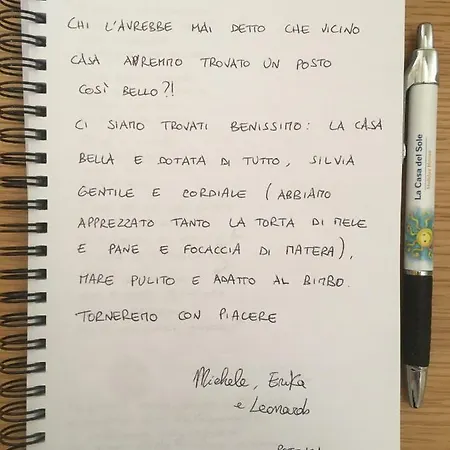 CHI L'AVREBBE MAI DETTO CHE VICINO
CASA AVREMMO TROVATO UN POSTO
COSÌ BELLO?!
CI SIAMO TROVATI BENISSIMO: LA CASA
BELLA E DOTATA DI TUTTO, SILVIA
GENTILE E CORDIALE (ABBIAMO
APPREZZATO TANTO LA TORTA DI MELE
E PANE E FOCACCIA DI MATERA),
MARE PULITO E ADATTO AL BIMBO.
TORNEREMO CON PIACERE
Michele, Erika
e Leonardo
La Casa del Sole